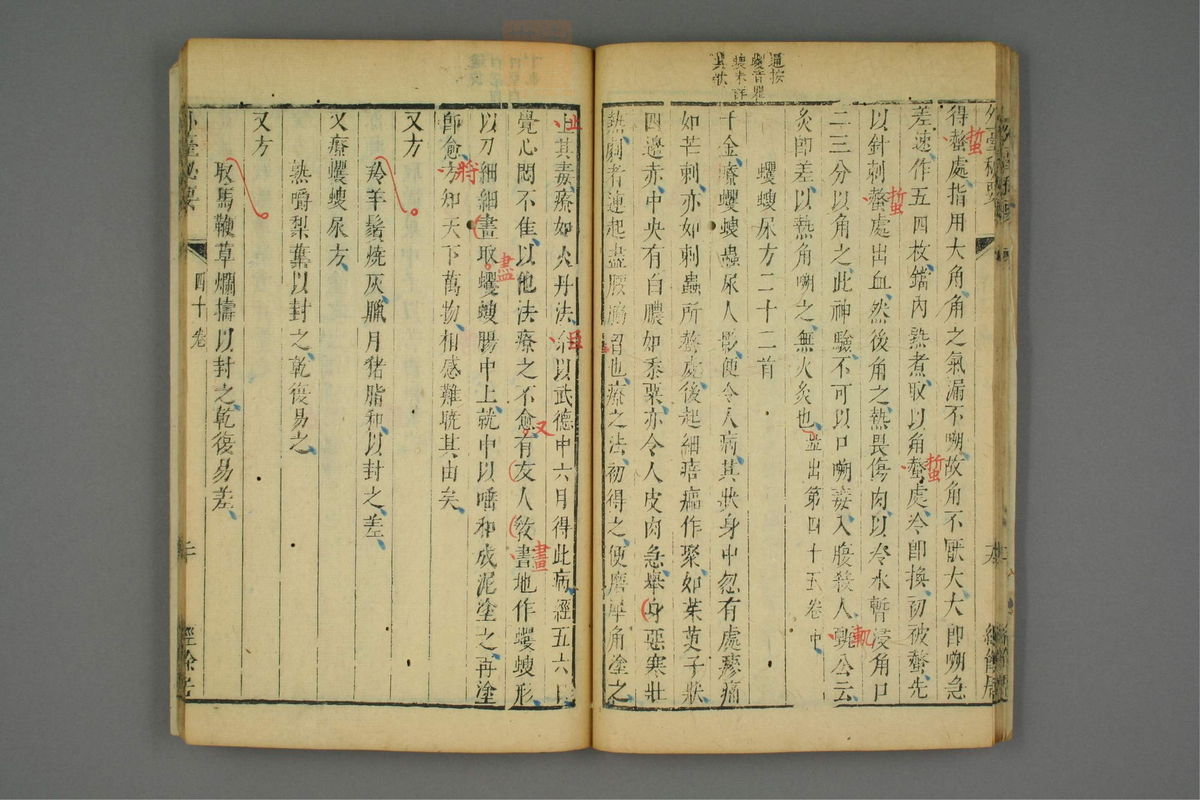 通按
蠼音瞿
螋未詳
其狀
外臺秘要
得螫處指用大角角之氣漏不嗍故角不厭大大即嗍急
差速作五四枚鐺內熟煮取以角螫處冷即換初被螫先
以針刺螫處出血然後角之熱畏傷肉以冷水暫浸角口
二三分以角之此神驗不可以口嗍毒入腹殺人甄公云
灸即差以熱角嗍之無火灸也並出第四十五卷中
蠼螋尿方二十二首
千金療蠼螋蟲尿人影便令人病其狀身中忽有處瘮痛
如芒刺亦如刺蟲所螫處後起細㾦㿔作聚如茱萸子狀
四邊赤中央有白膿如黍粟亦令人皮肉急舉身惡寒壯
熱劇者連起盡腰脇胷也療之法初得之便磨犀角塗之
止其毒療如火丹法余以武德中六月得此病經五六日
覺心悶不佳以他法療之不愈有友人教畫地作蠼螋形
以刀細細盡取蠼螋腸中土就中以唾和成泥塗之再塗
即愈方知天下萬物相感難曉其由矣
又方
羚羊鬚燒灰臘月猪脂和以封之差
又療蠼螋尿方
熟嚼梨葉以封之乾復易之
又方
取馬鞭草爛擣以封之乾復易差
外臺秘要
四十卷
經餘居
蜇
蜇
蜇
甄
且
又
畫
盡
將